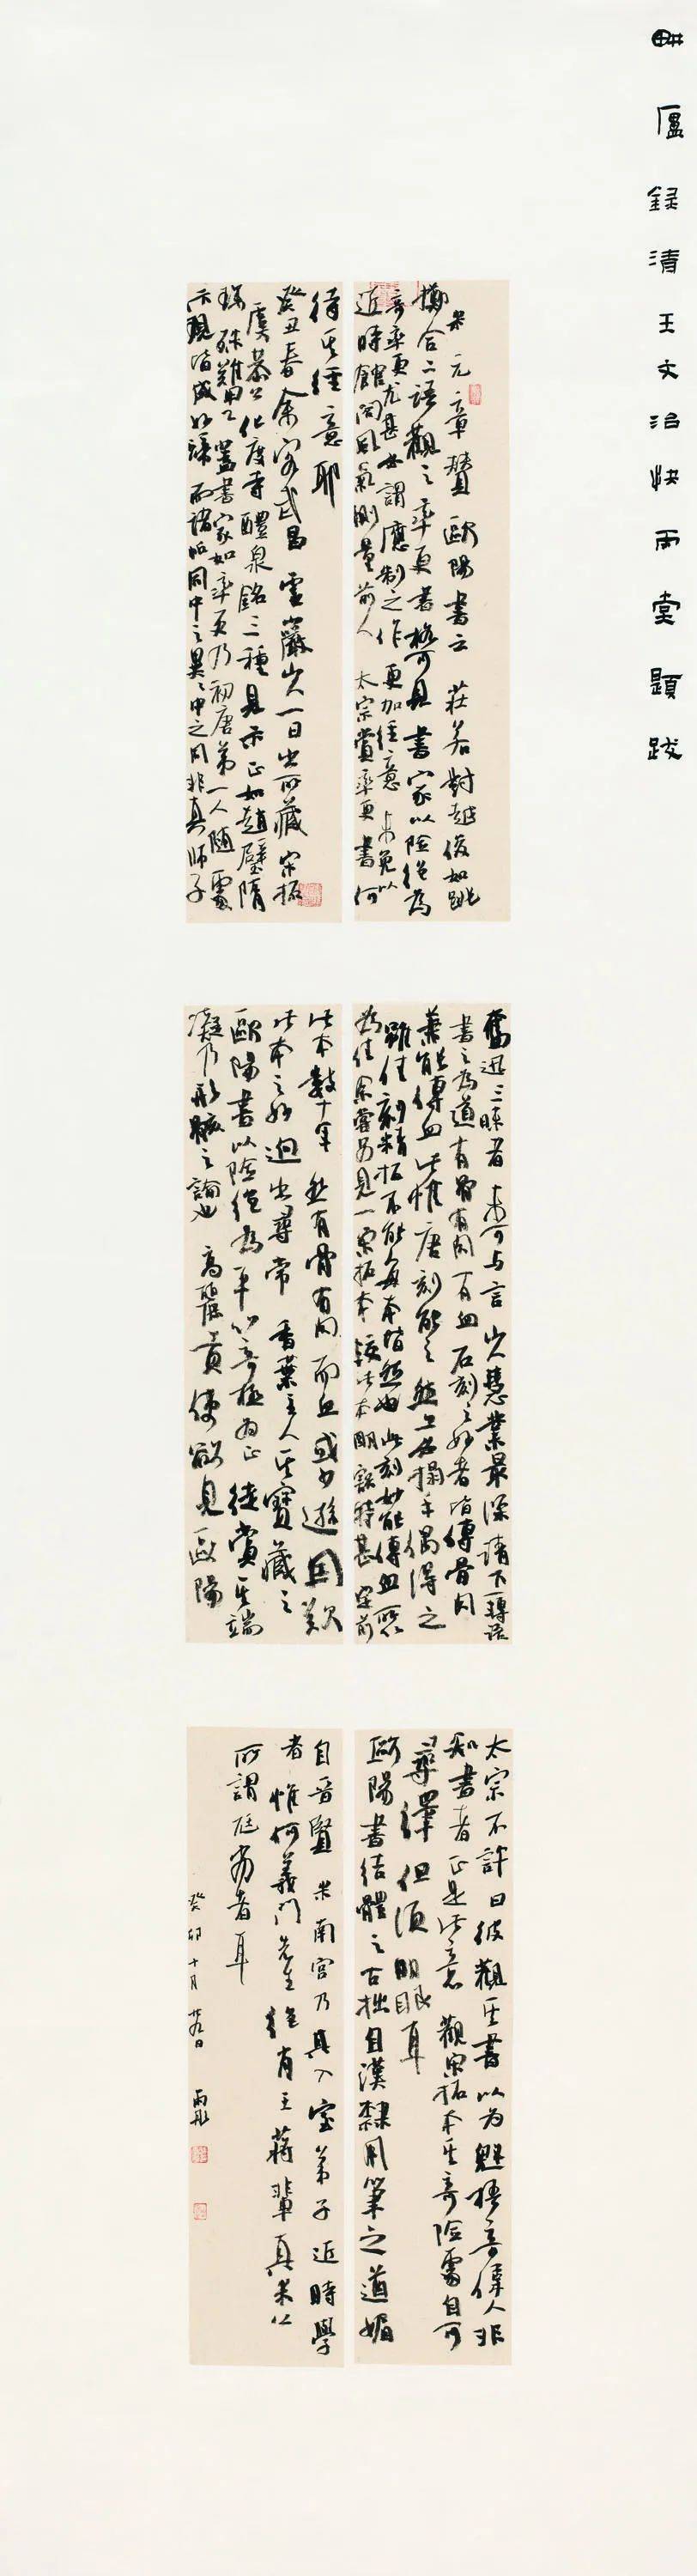 畊廬録清王文治快雨堂題跋
米元章贊歐陽書云莊若對越俊如跳
擲合二語觀之率更書格可見書家以險絕為
奇率更尤甚如謂應制之作更加經意未免以
近時館閣風氣測量前人太宗賞率更書何
待其經意耶
癸丑春余客武昌雲巖山人一日出所藏宋拓
虞恭公化度寺醴泉銘三種見示正如趙璧隋
珠難甲乙蓋書家如率更乃初唐第一人隨處
示現皆成妙諦而諸帖同中之異異中之同非真師子
奮迅三昧者未可與言山人慧業最深請下一轉語
書之為道有骨有肉有血石刻之妙者皆傳骨肉
兼能傳血此惟唐刻能之然上石搨手偶得之
雖佳刻精拓不能每本皆然也此刻妙能傳血所以
為佳余嘗另見一宋拓本較此本明豁特甚定前
此本數十年然有骨有肉而血或少遜因歎
此本之妙迥出尋常香葉主人其寶藏之
歐陽書以險絕為平以奇極為正徒賞其端
凝乃形骸之論也高麗貢使願見歐陽
太宗不許曰彼觀其書以為魁梧奇偉人非
知書者正是此意觀宋拓本其奇險處自可
尋繹但須明眼耳
歐陽書結體之古拙自漢隸用筆之遒媚
自晉賢米南宮乃真入室弟子近時學
者惟何義門先生絕肖王蔣輩真米公
所謂尪劣者耳
癸卯十月廿九日